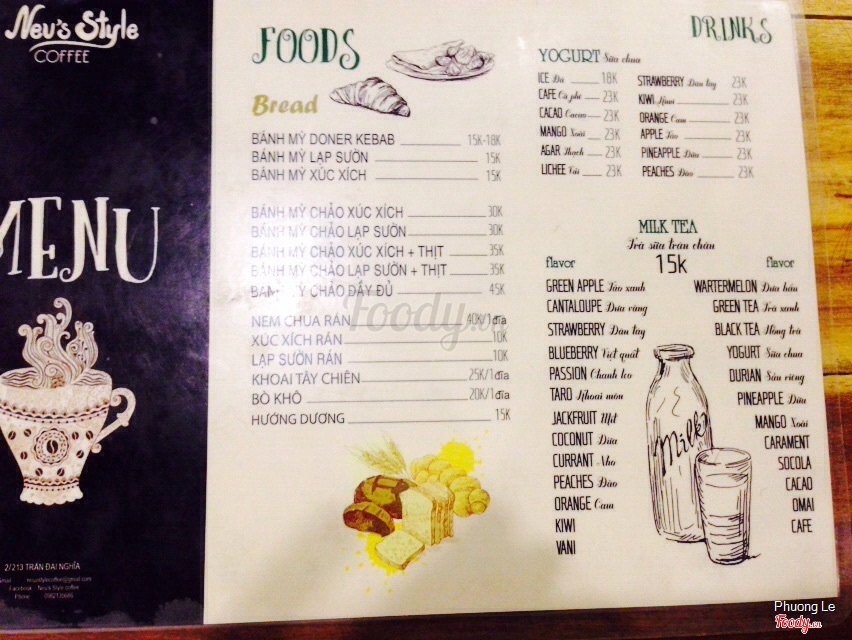 Neu's Style
COFFEE
MENU
2/213 TRẦN ĐẠI NGHĨA
FOODS
Bread
BÁNH MỲ DONER KEBAB 15K-18K
BÁNH MỲ LẠP SƯỜN 15K
BÁNH MỲ XÚC XÍCH 15K
BÁNH MỲ CHẢO XÚC XÍCH 30K
BÁNH MỲ CHẢO LẠP SƯỜN 30K
BÁNH MỲ CHẢO XÚC XÍCH + THỊT 35K
BÁNH MỲ CHẢO LẠP SƯỜN + THỊT 35K
BÁNH MỲ CHẢO ĐẦY ĐỦ 45K
NEM CHUA RÁN 40K/1đĩa
XÚC XÍCH RÁN 10K
LẠP SƯỜN RÁN 10K
KHOAI TÂY CHIÊN 25K/1đĩa
BÒ KHÔ 20K/1đĩa
HƯỚNG DƯƠNG 15K
DRINKS
YOGURT Sữa chua
ICE Đá 18K
CAFE Cà phê 23K
CACAO Cacao 23K
MANGO Xoài 23K
AGAR Thạch 23K
LICHEE Vải 23K
STRAWBERRY Dâu tây 23K
KIWI Kiwi 23K
ORANGE Cam 23K
APPLE Táo 23K
PINEAPPLE Dứa 23K
PEACHES Đào 23K
MILK TEA
Trà sữa trân châu
15k
flavor
GREEN APPLE Táo xanh
CANTALOUPE Dưa vàng
STRAWBERRY Dâu tây
BLUEBERRY Việt quất
PASSION Chanh leo
TARO Khoai môn
JACKFRUIT Mít
COCONUT Dừa
CURRANT Nho
PEACHES Đào
ORANGE Cam
KIWI
VANI
flavor
WARTERMELON Dưa hấu
GREEN TEA Trà xanh
BLACK TEA Hồng trà
YOGURT Sữa chua
DURIAN Sầu riêng
PINEAPPLE Dứa
MANGO Xoài
CARAMENT
SOCOLA
CACAO
OMAI
CAFE
Milk
Foody.vn
Phuong Le
Foody.vn